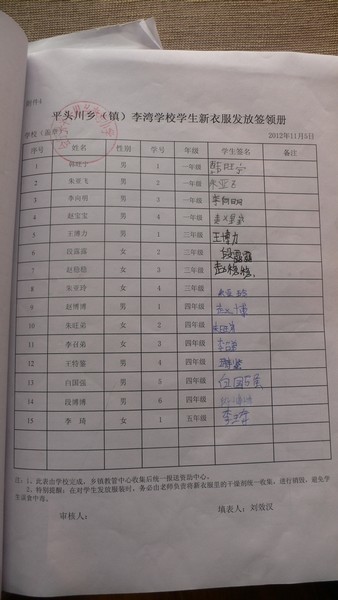 附件4
平头川乡（镇）李湾学校学生新衣服发放签领册
学校（盖章）： 2012年11月5日
序号 姓名 性别 学号 年级 学生签名 备注
1 男 1 一年级
2 朱亚飞 男 2 一年级 朱亚飞
3 李向明 男 3 一年级 李向明
4 赵宝宝 男 4 一年级
5 王博力 男 1 三年级 王博力
6 段露露 女 2 三年级 段露露
7 赵稳稳 女 3 三年级 赵稳稳
8 朱亚玲 女 4 三年级
9 赵博博 男 1 四年级
10 朱旺弟 女 2 四年级
11 李召弟 女 3 四年级
12 王特鉴 男 4 四年级
13 白国强 男 5 四年级 白国强
14 段博博 男 6 四年级
15 李琦 女 1 五年级 李琦
注：1、此表由学校完成，乡镇教管中心收集后统一报送资助中心。
2、特别提醒：在对学生发放服装时，务必由老师负责将新衣服里的干燥剂统一收集，进行销毁，避免学
生误食中毒。
审核人： 填表人：刘效汉